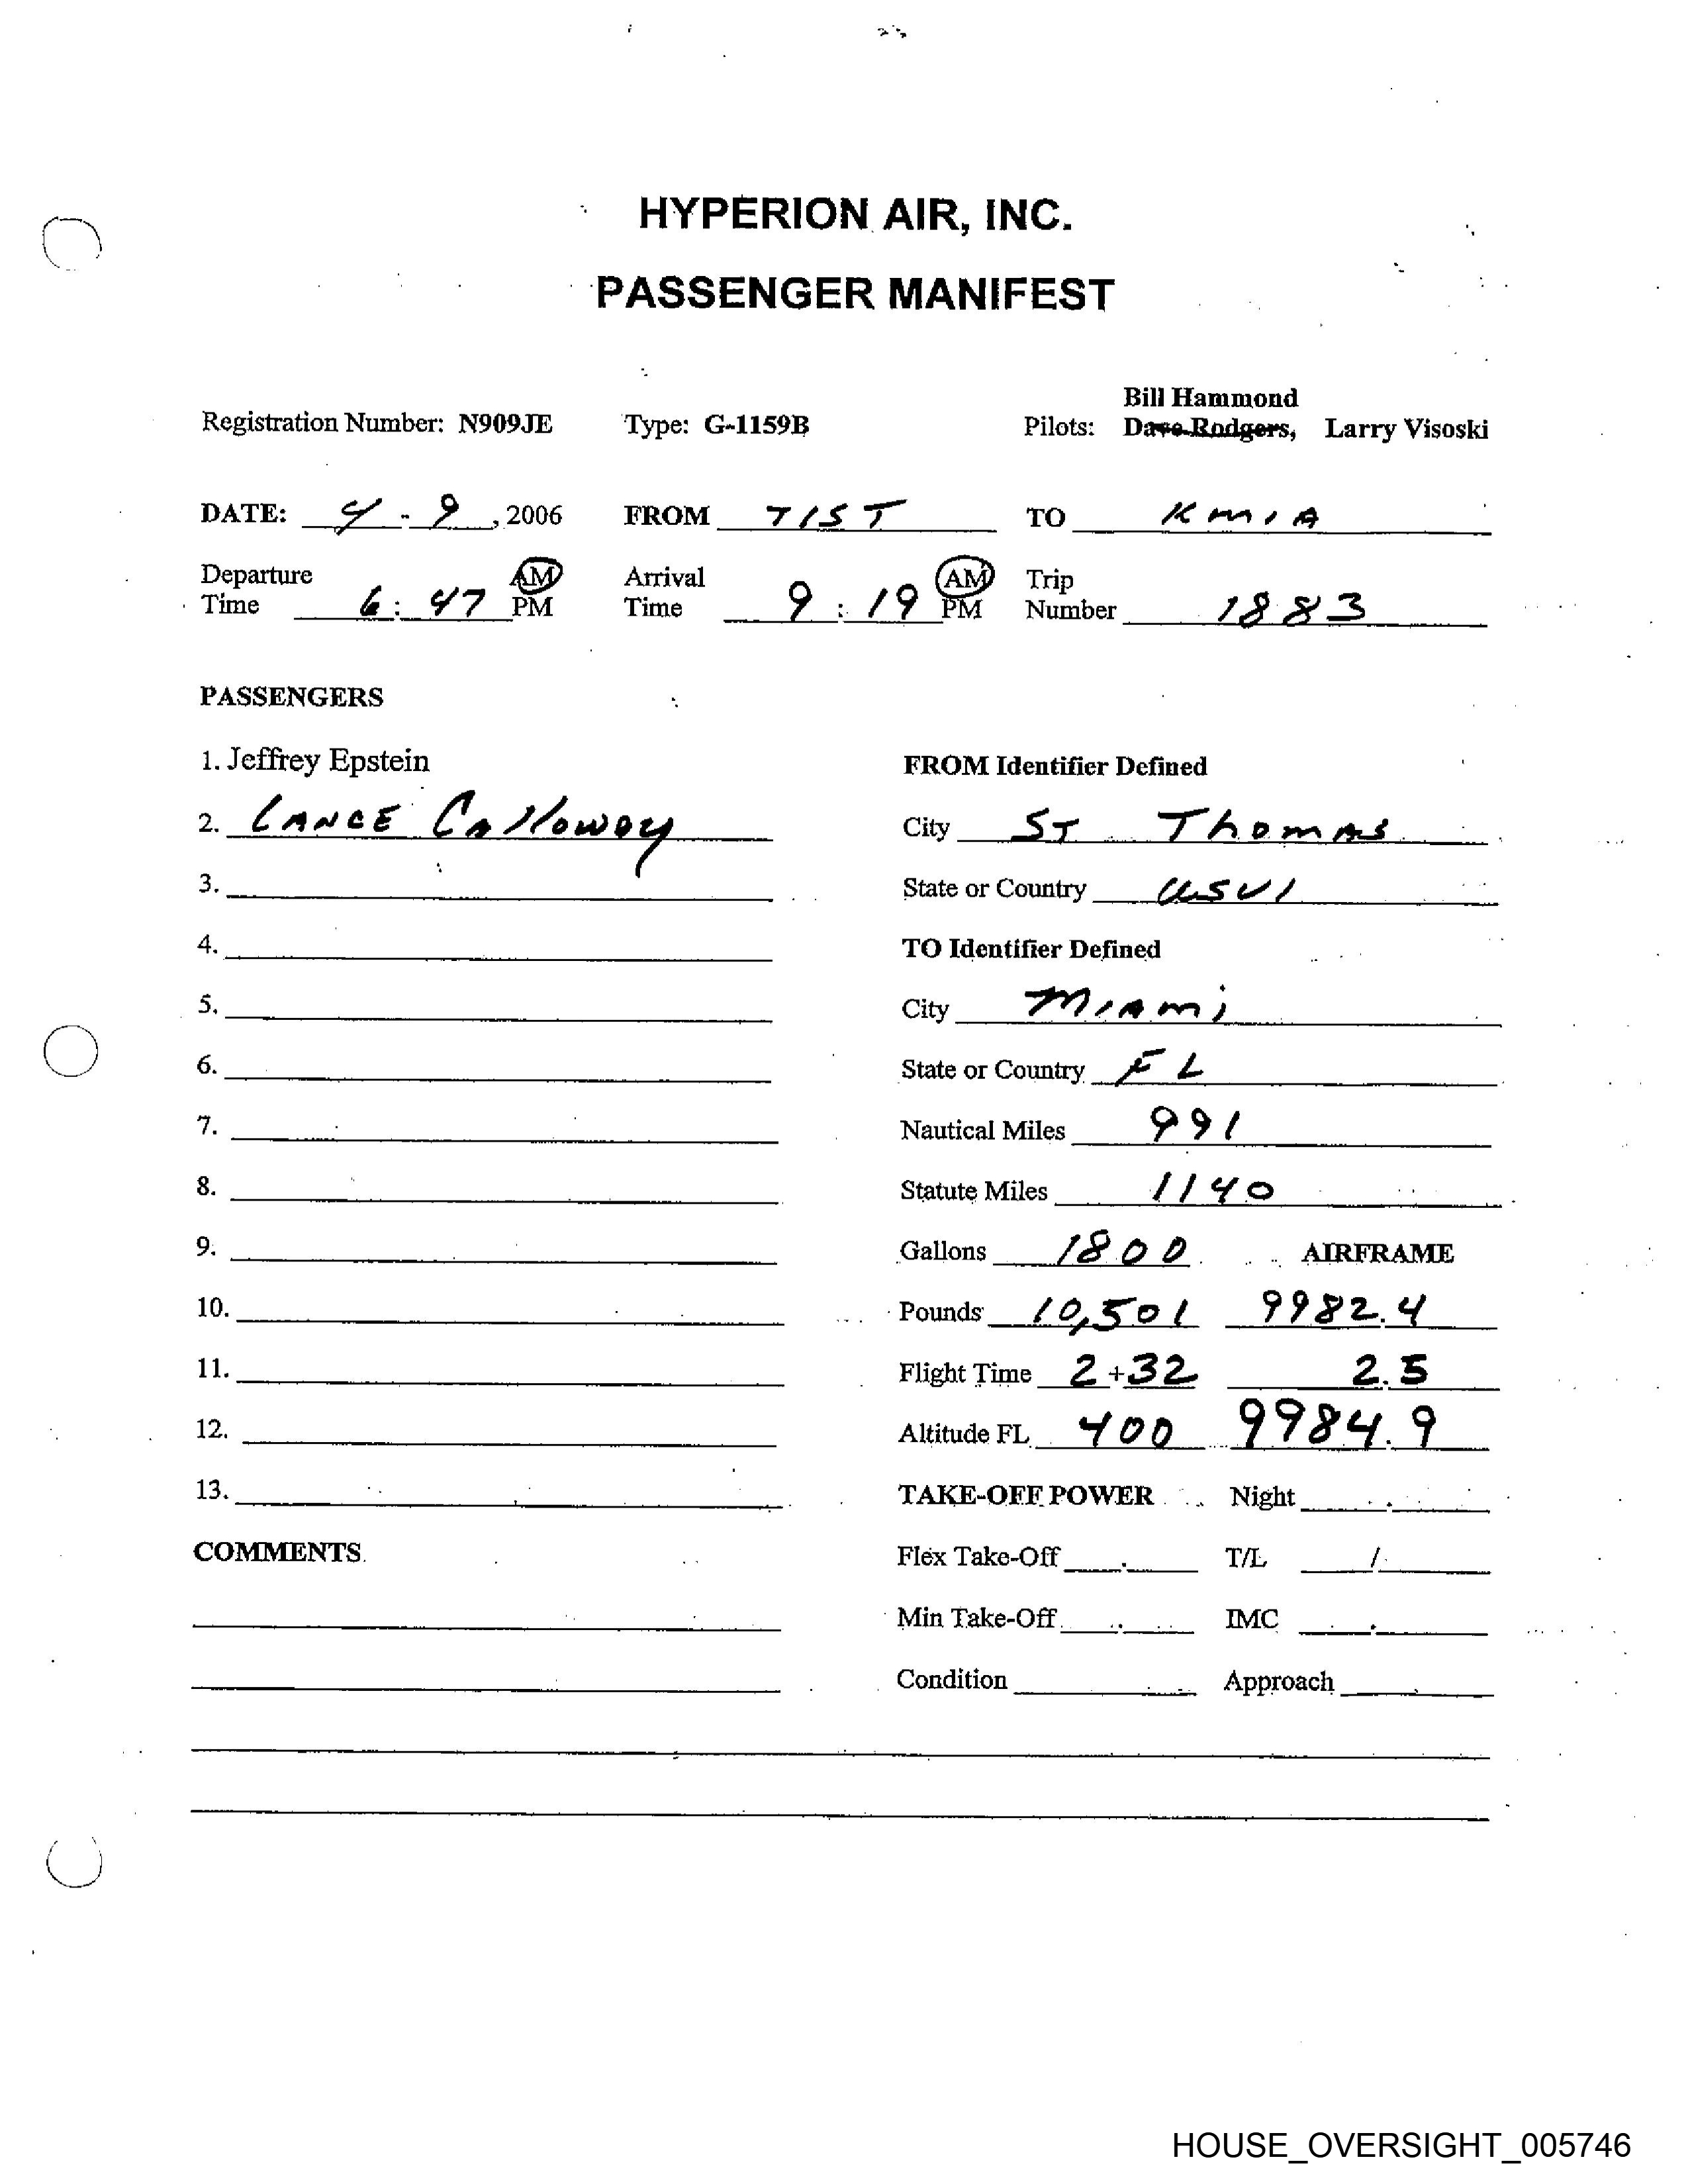 HYPERION AIR, INC.
PASSENGER MANIFEST
Bill Hammond
Registration Number: N909JE Type: G-1159B Pilots: Dave Rodgers, Larry Visoski
DATE: 4 - 9, 2006 FROM TIST TO KMIA
Departure AM Arrival AM Trip
Time 6:47 PM Time 9:19 PM Number 1883
PASSENGERS
1. Jeffrey Epstein FROM Identifier Defined
2. LANCE CAlloway City ST Thomas
3. State or Country USVI
4. TO Identifier Defined
5. City Miami
6. State or Country FL
7. Nautical Miles 991
8. Statute Miles 1140
9. Gallons 1800 AIRFRAME
10. Pounds 10,501 9982.4
11. Flight Time 2+32 2.5
12. Altitude FL 400 9984.9
13. TAKE-OFF POWER Night .
COMMENTS Flex Take-Off . T/L /
Min Take-Off . IMC .
Condition Approach
HOUSE_OVERSIGHT_005746